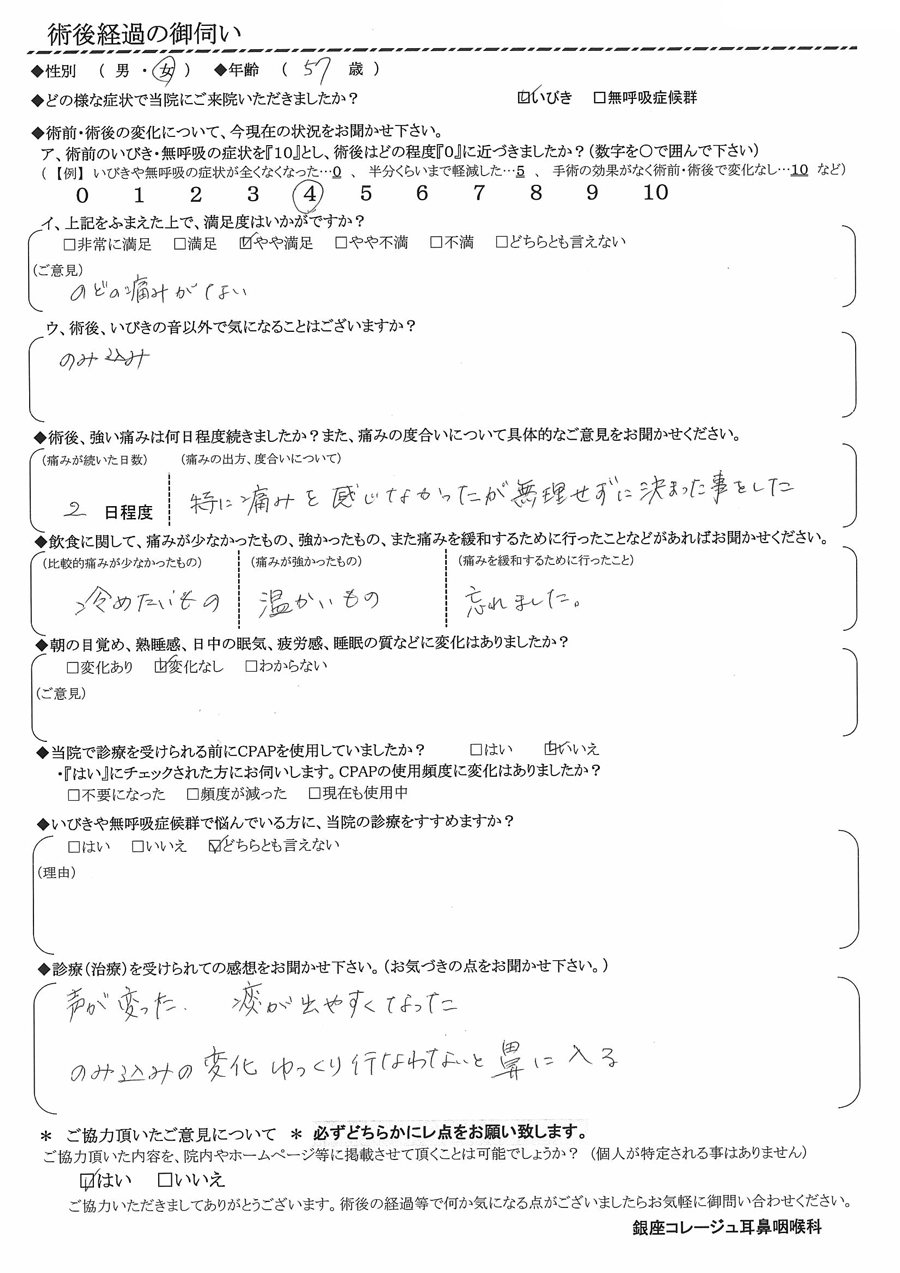 術後経過の御伺い
◆性別 （ 男 ・ 女 ） ◆年齢 （ 57 歳 ）
◆どの様な症状で当院にご来院いただきましたか？ ☑いびき □無呼吸症候群
◆術前・術後の変化について、今現在の状況をお聞かせ下さい。
ア、術前のいびき・無呼吸の症状を『10』とし、術後はどの程度『0』に近づきましたか？（数字を○で囲んで下さい）
（ 【例】 いびきや無呼吸の症状が全くなくなった…0 、 半分くらいまで軽減した…5 、 手術の効果がなく術前・術後で変化なし…10 など）
0 1 2 3 4 5 6 7 8 9 10
イ、上記をふまえた上で、満足度はいかがですか？
□非常に満足 □満足 ☑やや満足 □やや不満 □不満 □どちらとも言えない
（ご意見）
のどの痛みがない
ウ、術後、いびきの音以外で気になることはございますか？
のみ込み
◆術後、強い痛みは何日程度続きましたか？また、痛みの度合いについて具体的なご意見をお聞かせください。
（痛みが続いた日数） （痛みの出方、度合いについて）
2 日程度 特に痛みを感じなかったが無理せずに決まった事をした
◆飲食に関して、痛みが少なかったもの、強かったもの、また痛みを緩和するために行ったことなどがあればお聞かせください。
（比較的痛みが少なかったもの） （痛みが強かったもの） （痛みを緩和するために行ったこと）
冷めたいもの 温かいもの 忘れました。
◆朝の目覚め、熟睡感、日中の眠気、疲労感、睡眠の質などに変化はありましたか？
□変化あり ☑変化なし □わからない
（ご意見）
◆当院で診療を受けられる前にCPAPを使用していましたか？ □はい ☑いいえ
・『はい』にチェックされた方にお伺いします。CPAPの使用頻度に変化はありましたか？
□不要になった □頻度が減った □現在も使用中
◆いびきや無呼吸症候群で悩んでいる方に、当院の診療をすすめますか？
□はい □いいえ ☑どちらとも言えない
（理由）
◆診療（治療）を受けられての感想をお聞かせ下さい。（お気づきの点をお聞かせ下さい。）
声が変った. 痰が出やすくなった
のみ込みの変化 ゆっくり行なわないと鼻に入る
＊ ご協力頂いたご意見について ＊ 必ずどちらかにレ点をお願い致します。
ご協力頂いた内容を、院内やホームページ等に掲載させて頂くことは可能でしょうか？ （個人が特定される事はありません）
☑はい □いいえ
ご協力いただきましてありがとうございます。術後の経過等で何か気になる点がございましたらお気軽に御問い合わせください。
銀座コレージュ耳鼻咽喉科